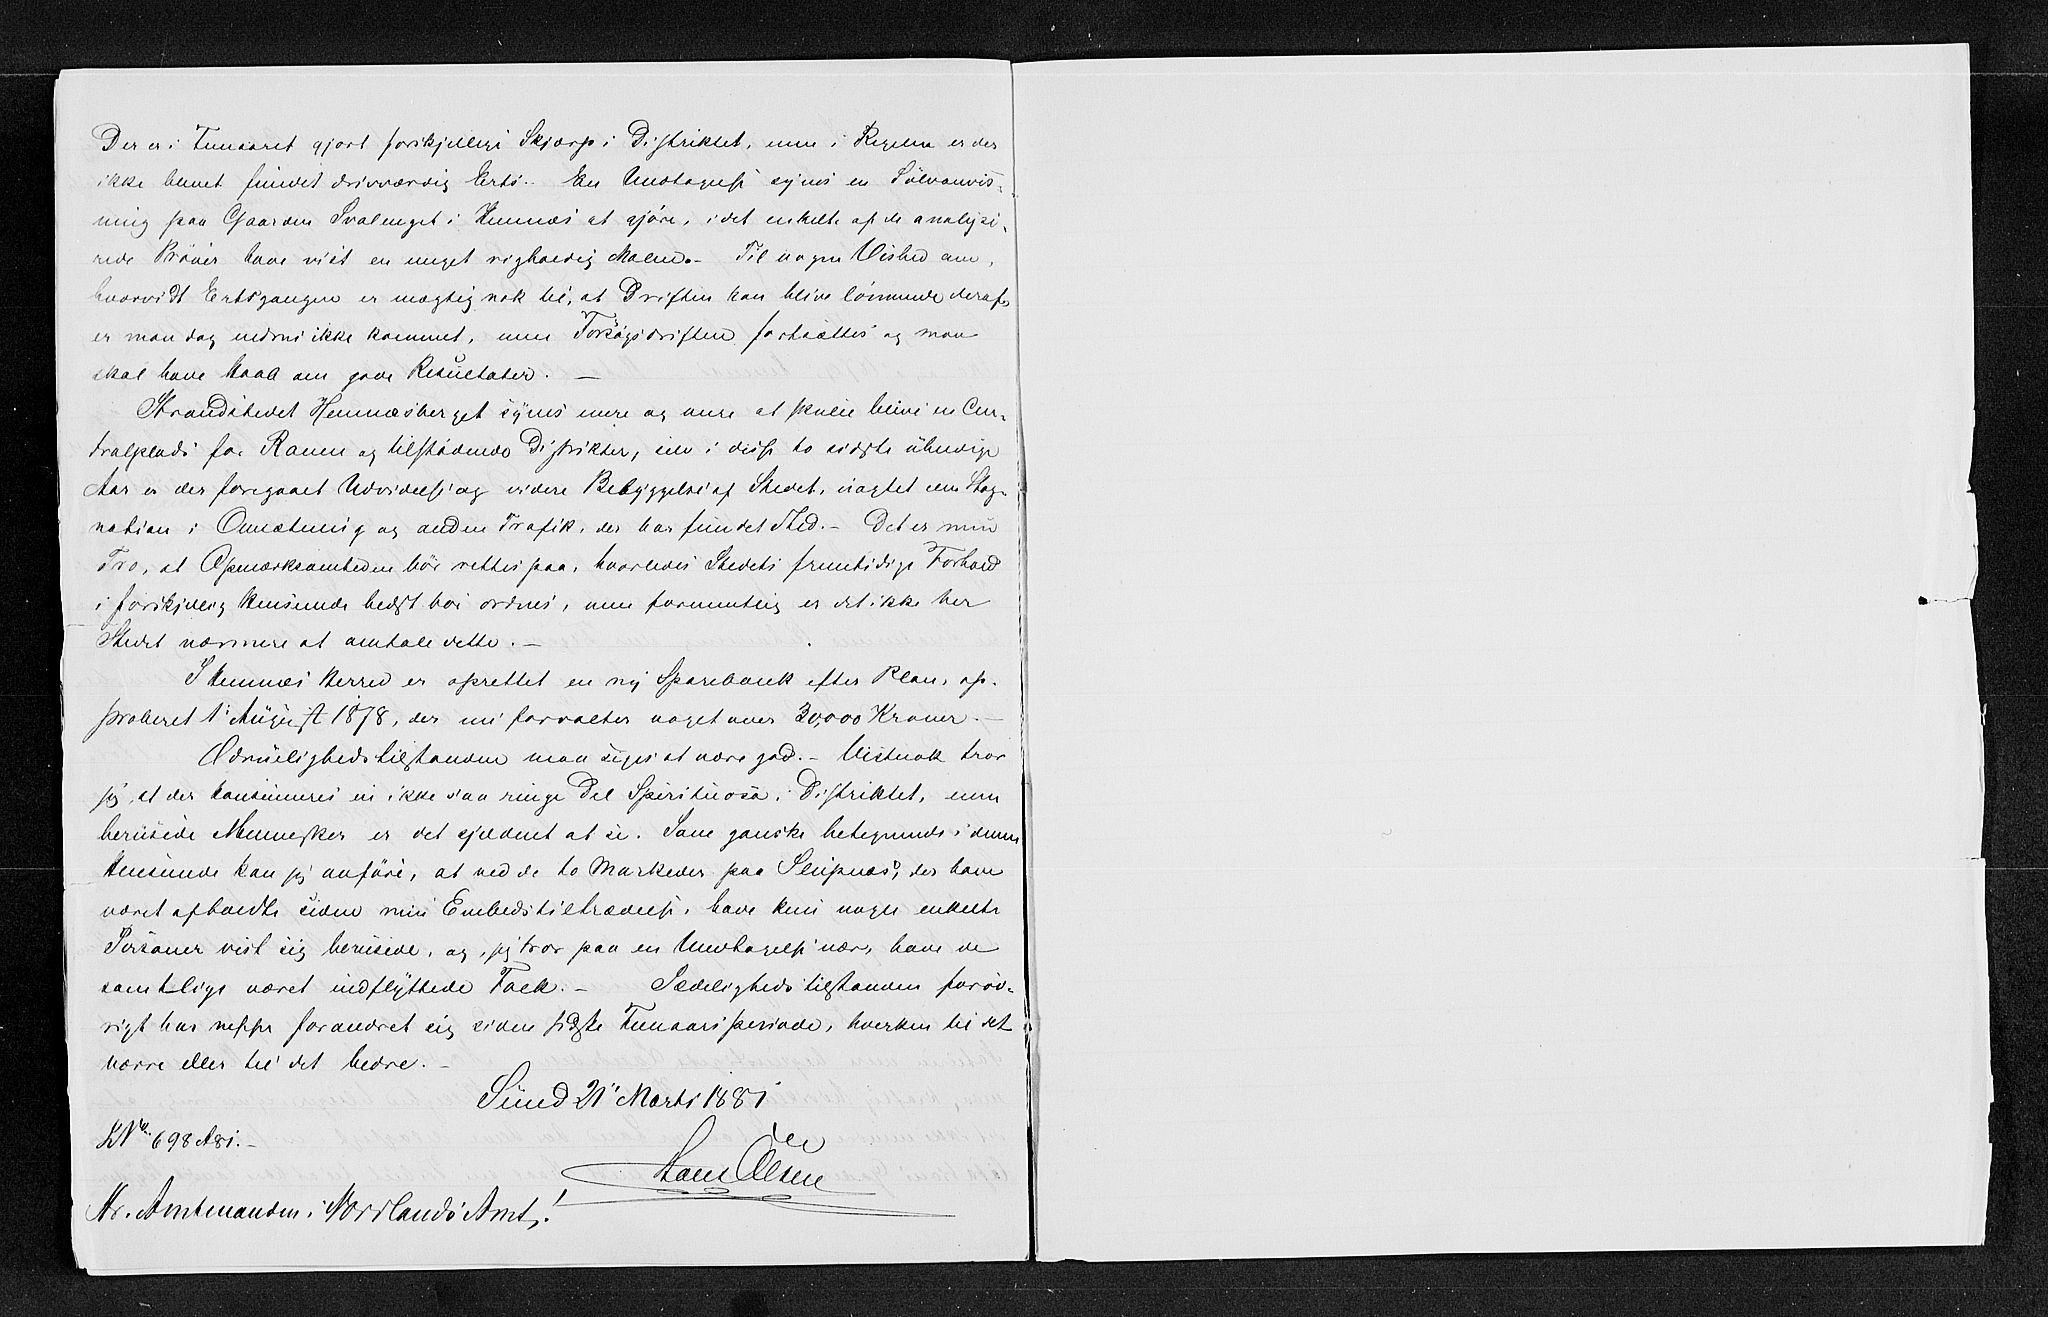 Der er i Femaaret gjort forskjellige Skjærp i Distriktet, men i Regelen er der
ikke blevet fundet drivværdig Erts. En Undtagelse synes en Sølvanvis-
ning paa Gaarden Svalenget i Hemnæs at gjøre, idet enkelte af de analyse-
rede Prøver have vist en meget righoldig Malm. – Til nogen Vished om,
hvorvidt Ertsgangen er mægtig nok til, at Driften kan blive lønnende deraf,
er man dog endnu ikke kommet, men Forsøgsdriften fortsættes og man
skal have Haab om gode Resultater. —
Strandstedet Hemnæsberget synes mere og mere at skulle blive en Cen-
tralplads for Ranen og tilstødende Distrikter, selv i disse to sidste uheldige
Aar er der foregaaet Udvidelse og videre Bebyggelse af Stedet, uagtet den Stag-
nation i Omsætning og anden Trafik, der har fundet Sted. – Det er min
Tro, at Opmærksomheden bør rettes paa, hvorledes Stedets fremtidige Forhold
i forskjellig Henseende bedst bør ordnes, men formentlig er det ikke her
Stedet nærmere at omtale dette. –
I Hemnæs Herred er oprettet en ny Sparebank efter Plan, ap-
proberet 1' August 1878, der nu forvalter noget over 30,000 Kroner. –
Ædruelighedstilstanden maa siges at være god. – Vistnok tror
jeg, at der konsumeres en ikke saa ringe Del Spirituosa i Distriktet, men
berusede Mennesker er det sjældent at se. Som ganske betegnende i denne
Henseende kan jeg anføre, at ved de to Markeder paa Sletnæs, der have
været afholdte siden min Embedstiltrædelse, have kun nogle enkelte
Personer vist sig berusede, og, jeg tror paa en Undtagelse nær, have de
samtlige været indflyttede Folk. – Sædelighedstilstanden forøv-
rigt har neppe forandret sig siden sidste Femaarsperiode, hverken til det
værre eller til det bedre. –
Sund 21' Marts 1881
KNo. 698 A81. –
Hans Olsen
Hr. Amtmanden i Nordlands Amt!